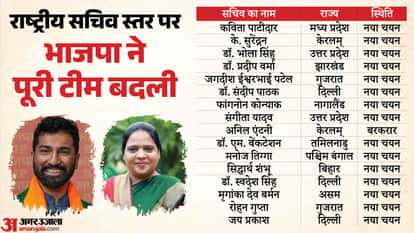 राष्ट्रीय सचिव स्तर पर
भाजपा ने
पूरी टीम बदली
सचिव का नाम राज्य स्थिति
कविता पाटीदार मध्य प्रदेश नया चयन
के. सुरेंद्रन केरलम् नया चयन
डॉ. भोला सिंह उत्तर प्रदेश नया चयन
डॉ. प्रदीप वर्मा झारखंड नया चयन
जगदीश ईश्वरभाई पटेल गुजरात नया चयन
डॉ. संदीप पाठक दिल्ली नया चयन
फांगनोन कोन्याक नागालैंड नया चयन
संगीता यादव उत्तर प्रदेश नया चयन
अनिल एंटनी केरलम् बरकरार
डॉ. एम. वेंकटेशन तमिलनाडु नया चयन
मनोज तिग्गा पश्चिम बंगाल नया चयन
सिद्धार्थ शंभू बिहार नया चयन
डॉ. स्वदेश सिंह दिल्ली नया चयन
मृगांका देव बर्मन असम नया चयन
रोहन गुप्ता गुजरात नया चयन
जय प्रकाश दिल्ली नया चयन
अमर उजाला
amarujala.com